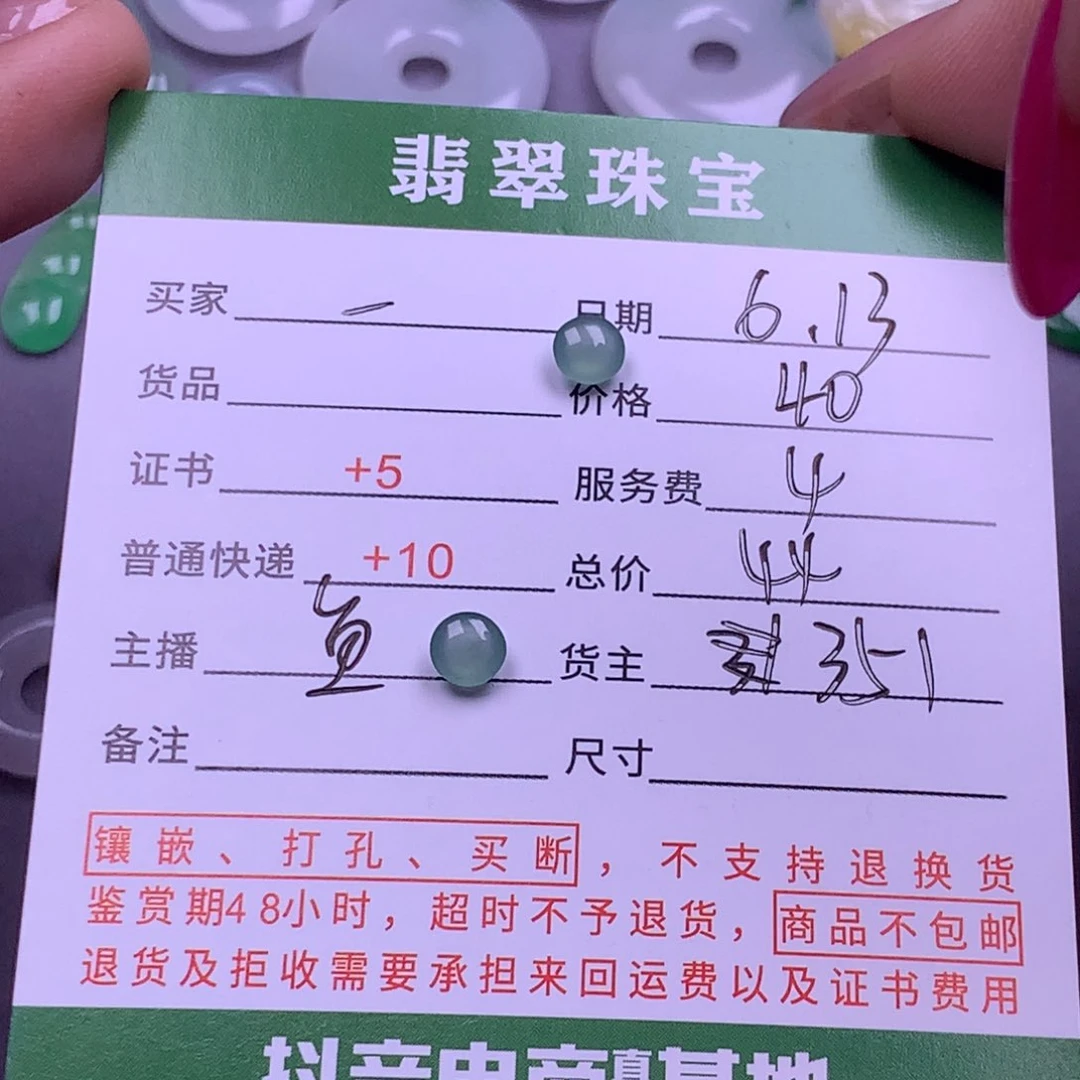 翡翠珠宝
买家 一 日期 6.13
货品 价格 40
证书 +5 服务费 4
普通快递 +10 总价 44
主播 货主 351
备注 尺寸
镶嵌、打孔、买断，不支持退换货
鉴赏期48小时，超时不予退货，商品不包邮
退货及拒收需要承担来回运费以及证书费用
抖音电商直播基地